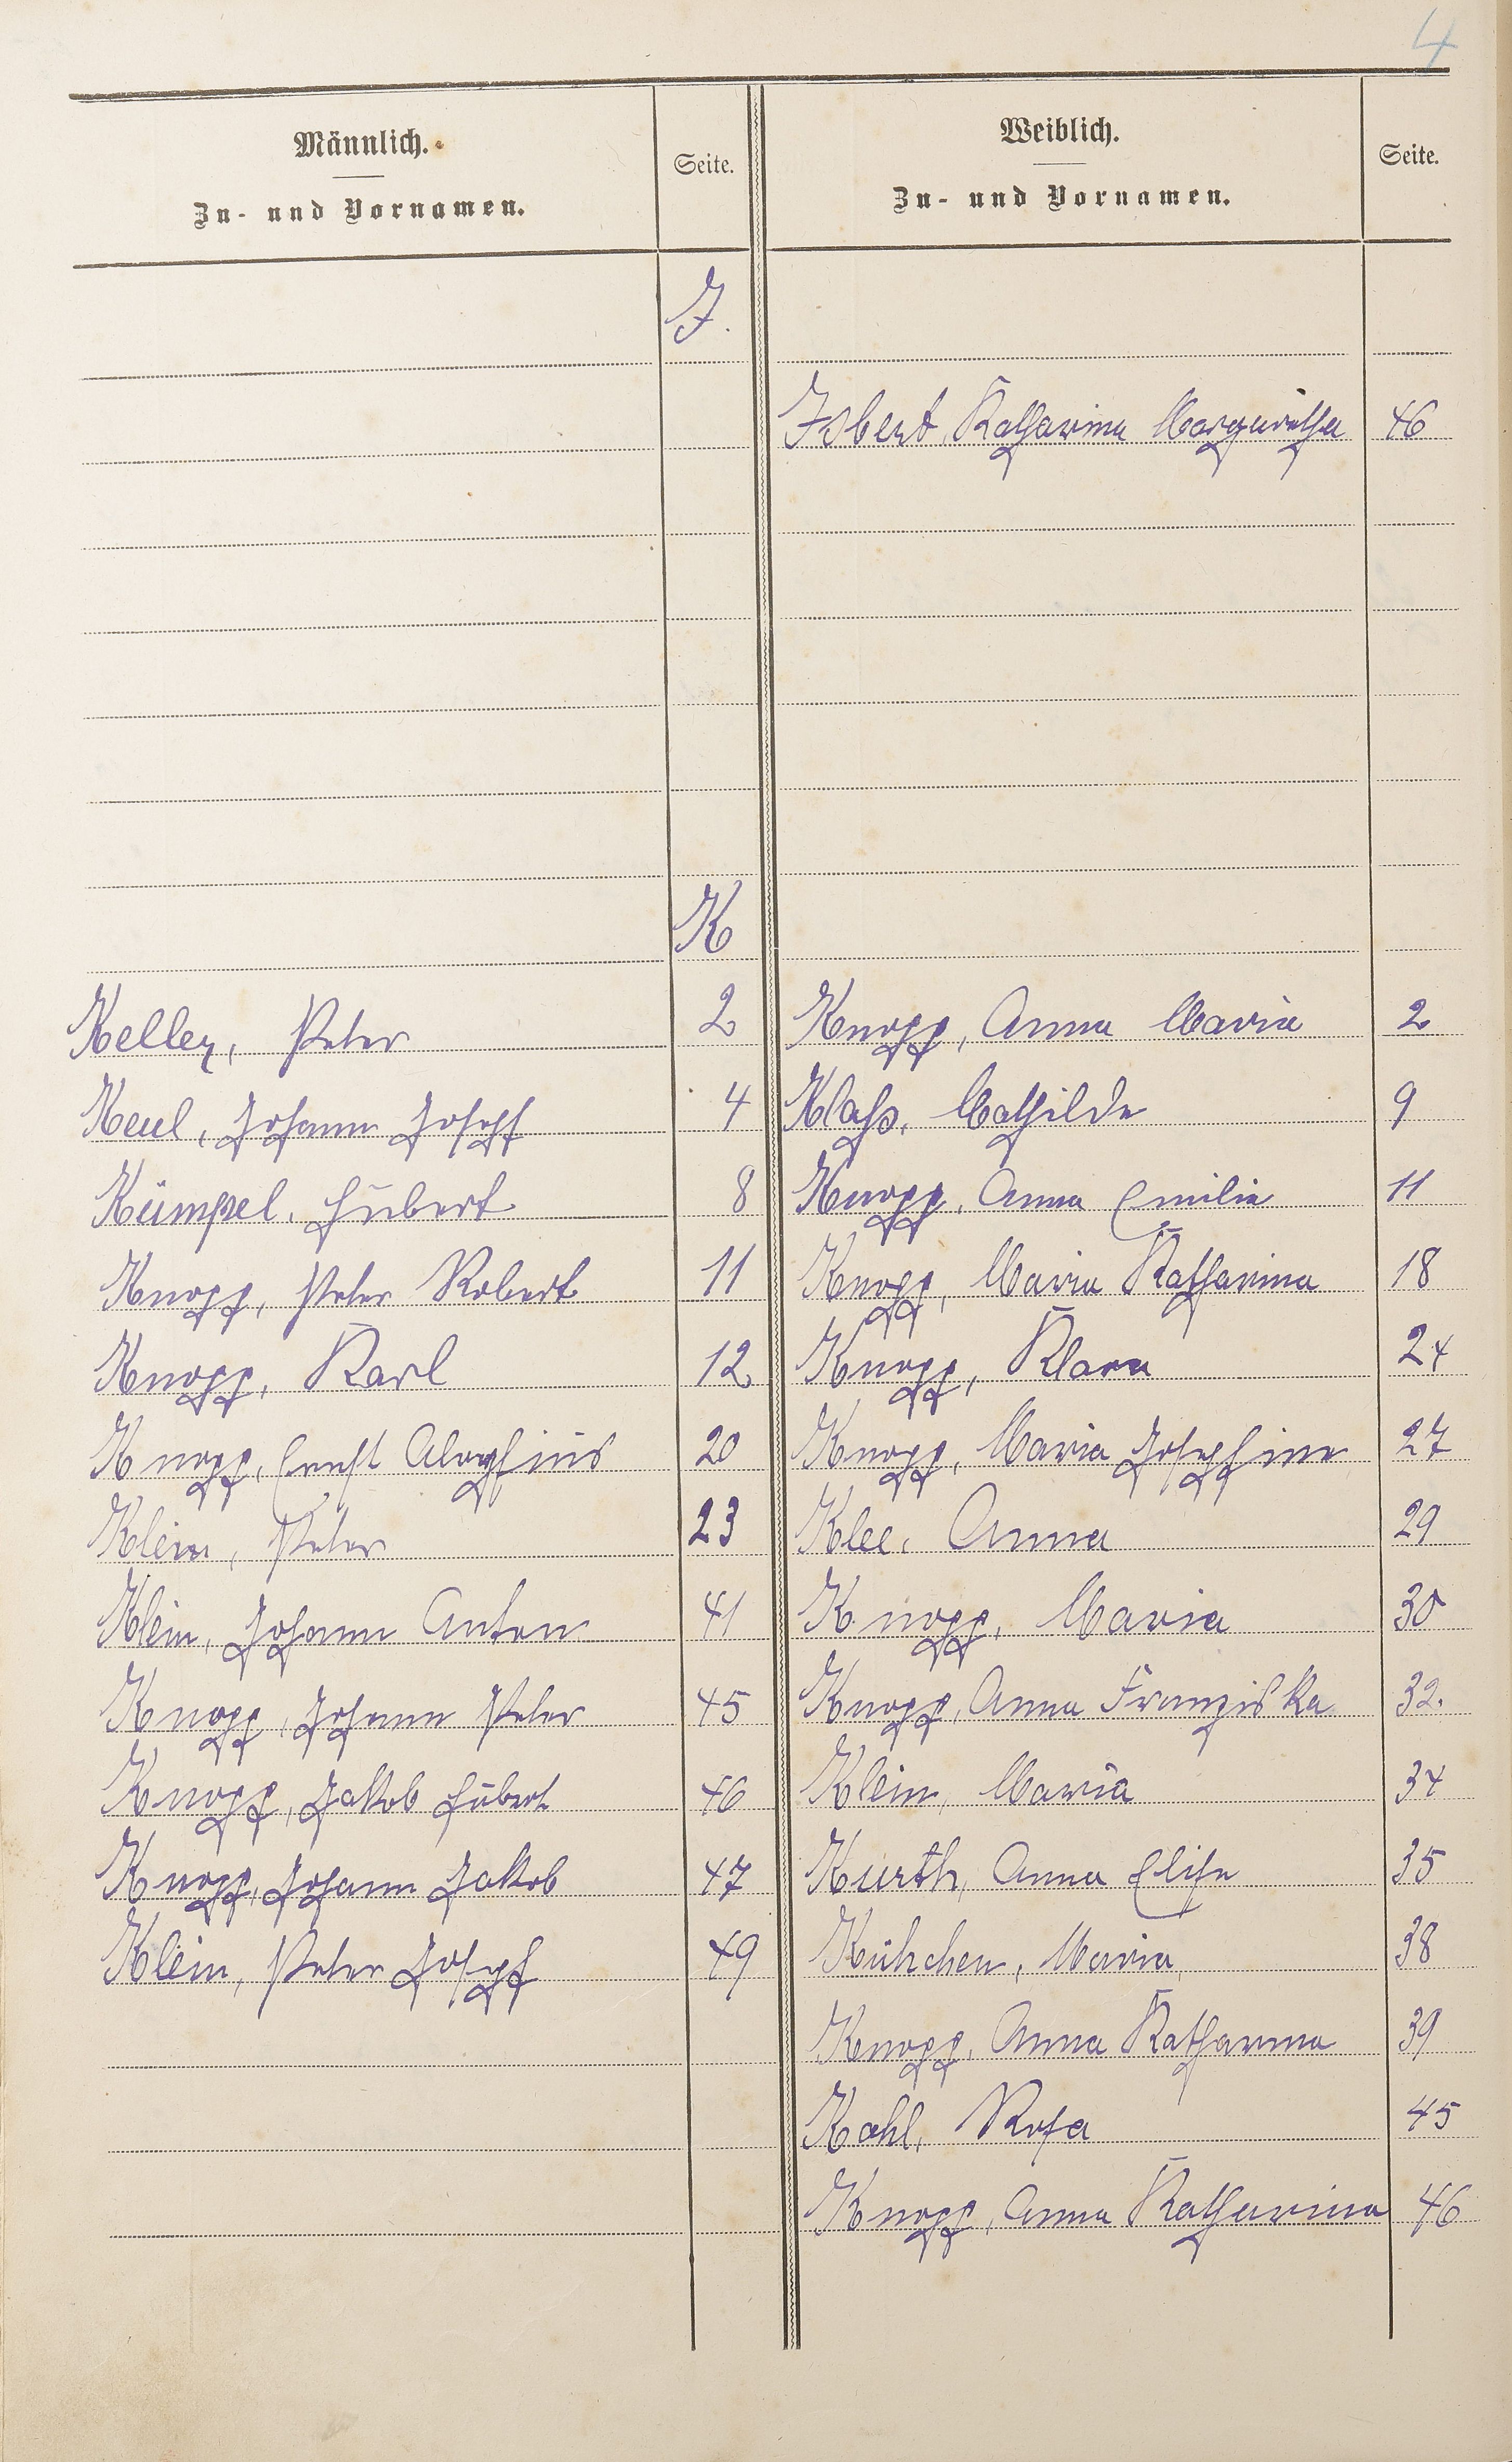 4
Männlich.
Zu- und Vornamen.
Seite.
Weiblich.
Zu- und Vornamen.
Seite.
J.
Isbert, Katharina Margaretha 46
K
Keller, Peter 2
Keul, Johann Joseph 4
Kümpel, Hubert 8
Knopp, Peter Robert 11
Knopp, Karl 12
Knopp, Ernst Aloysius 20
Klein, Peter 23
Klein, Johann Anton 41
Knopp, Johann Peter 45
Knopp, Jakob Hubert 46
Knopp, Johann Jakob 47
Klein, Peter Joseph 49
Knopp, Anna Maria 2
Klaß, Mathilde 9
Knopp, Anna Emilie 11
Knopp, Maria Katharina 18
Knopp, Klara 24
Knopp, Maria Josephine 27
Klee, Anna 29
Knopp, Maria 30
Knopp, Anna Franziska 32.
Klein, Maria 34
Kurth, Anna Elise 35
Kühchen, Maria, 38
Knopp, Anna Katharina 39
Kohl, Rosa 45
Knopp, Anna Katharina 46